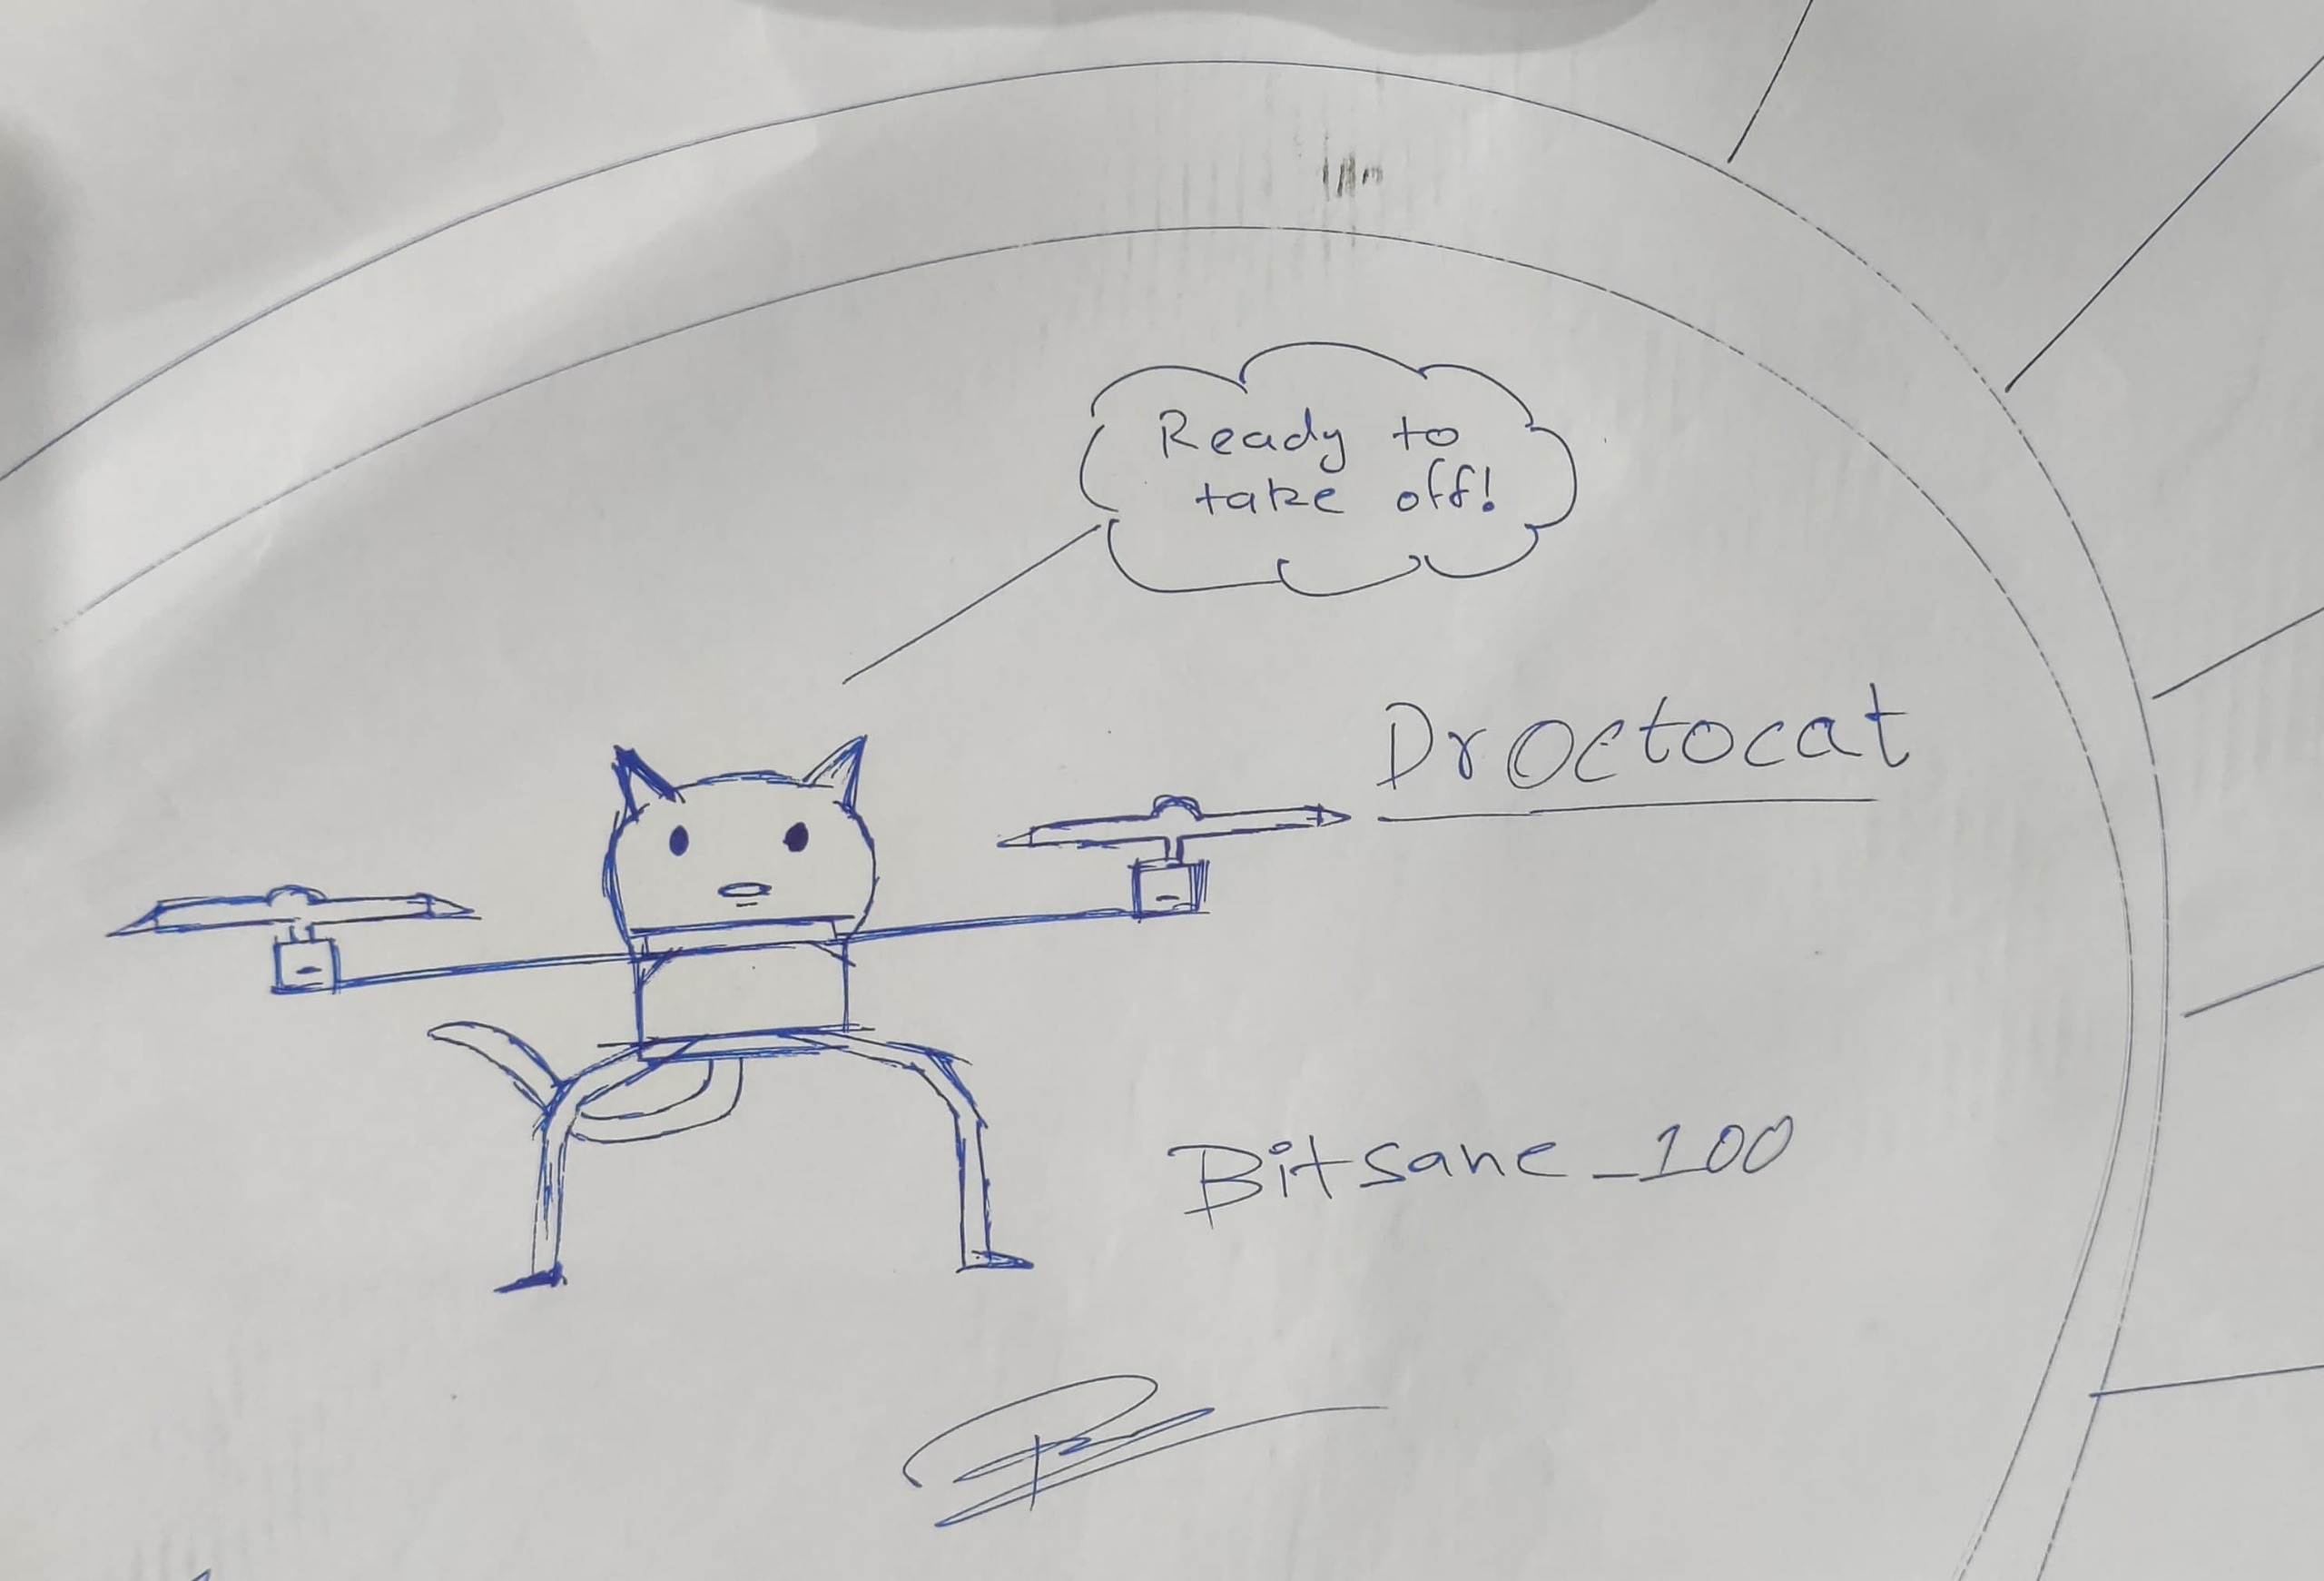 Ready to
take off!
Droctocat
Bitsane_100